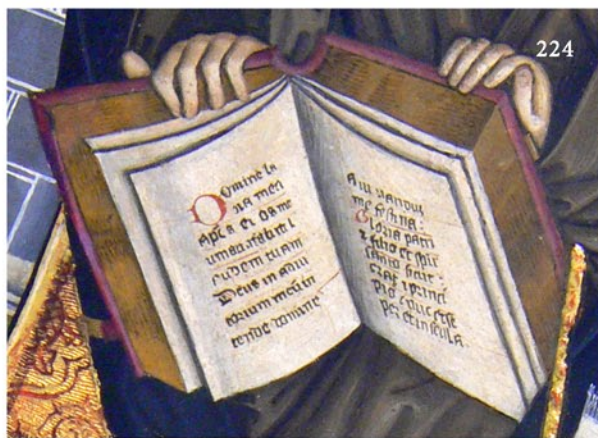 224
Domine la
bia mea
apıes et os me
um anūciabit l
audem tuam
Deus in adiu
torium meum in
tende domine
Adiuvanduz
me festina
Gloria patri
et filio et spir
sancto sicut
erat i princi
pio et nunc et se
per et in secula.